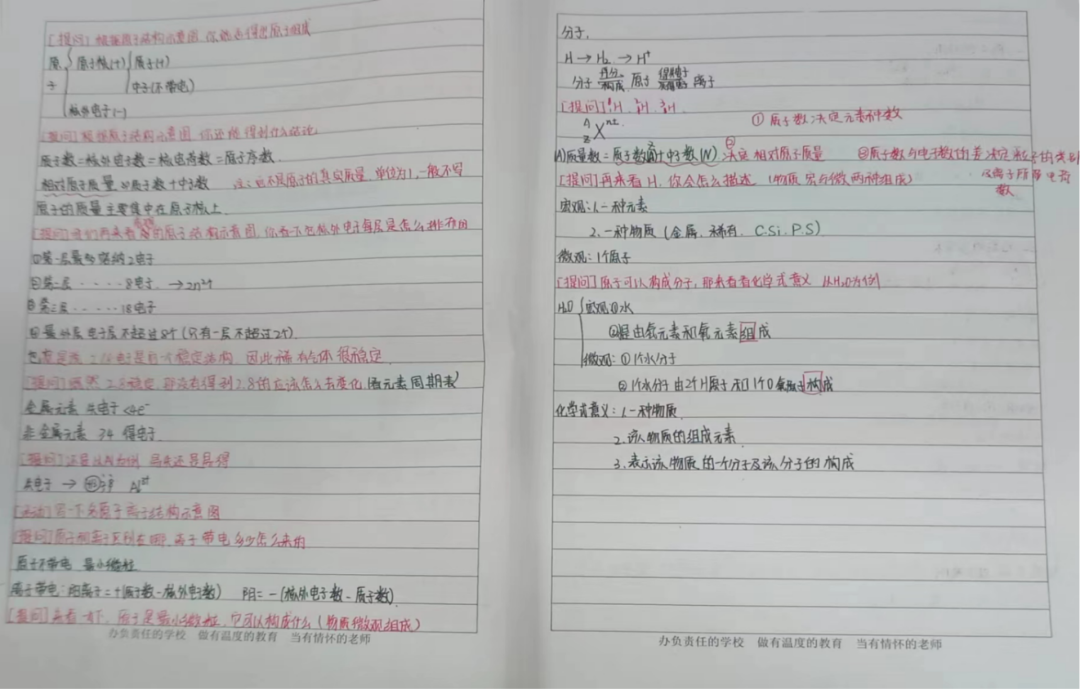 [提问] 根据原子结构示意图,你能否得出原子组成
原子 原子核(+) 质子(+)
中子(不带电)
核外电子(-)
[提问]根据原子结构示意图,你还能得到什么结论
质子数=核外电子数=核电荷数=原子序数
相对原子质量≈质子数+中子数 注:这不是原子的真实质量,单位为1,一般不写
原子的质量主要集中在原子核上
[提问]我们再来看的原子结构示意图,你看下包核外电子每层是怎么排布的
①第一层最多容纳2电子
②第二层 ····· 8电子 →2n²个
③第三层 ····· 18电子
④最外层电子层不超过8个(只有一层不超过2个)
电子是一个稳定结构,因此稀有气体很稳定
[提问]既然2.8稳定,那没有得到2.8的应该怎么去变化(画元素周期表)
金属元素 失电子 <4e⁻
非金属元素 >4 得电子
[提问]还是以Al为例 易失还是易得
失电子 → Al³⁺
[活动]写一下各原子离子结构示意图
[提问]原子和离子区别在哪,离子带电多少怎么来的
原子不带电 最小微粒
离子带电:阳离子=+(质子数-核外电子数) 阴=-(核外电子数-质子数)
[提问]来看一下,原子是最小微粒,它可以构成什么(物质微观组成)
办负责任的学校 做有温度的教育 当有情怀的老师
分子.
H→H₂→H⁺
分子 可分 构成 原子 得失电子 离子
[提问]¹H ²H ³H
A Z Xⁿ± ①质子数决定元素种数
(A)质量数=质子数(Z)+中子数(N) ②决定相对原子质量 ③质子数与电子数的差决定粒子的类别
以离子所带电荷数
[提问]再来看H,你会怎么描述(物质宏与微两种组成)
宏观:1.一种元素
2.一种物质(金属.稀有.C.Si.P.S)
微观:1个原子
[提问]原子可以构成分子,那来看看化学式意义 从H₂O为例
H₂O 宏观①水
②是由氢元素和氧元素组成
微观:①1个水分子
②1个水分子由2个H原子和1个O原子构成
化学式意义:1.一种物质
2.该物质的组成元素
3.表示该物质的一个分子及该分子的构成
办负责任的学校 做有温度的教育 当有情怀的老师